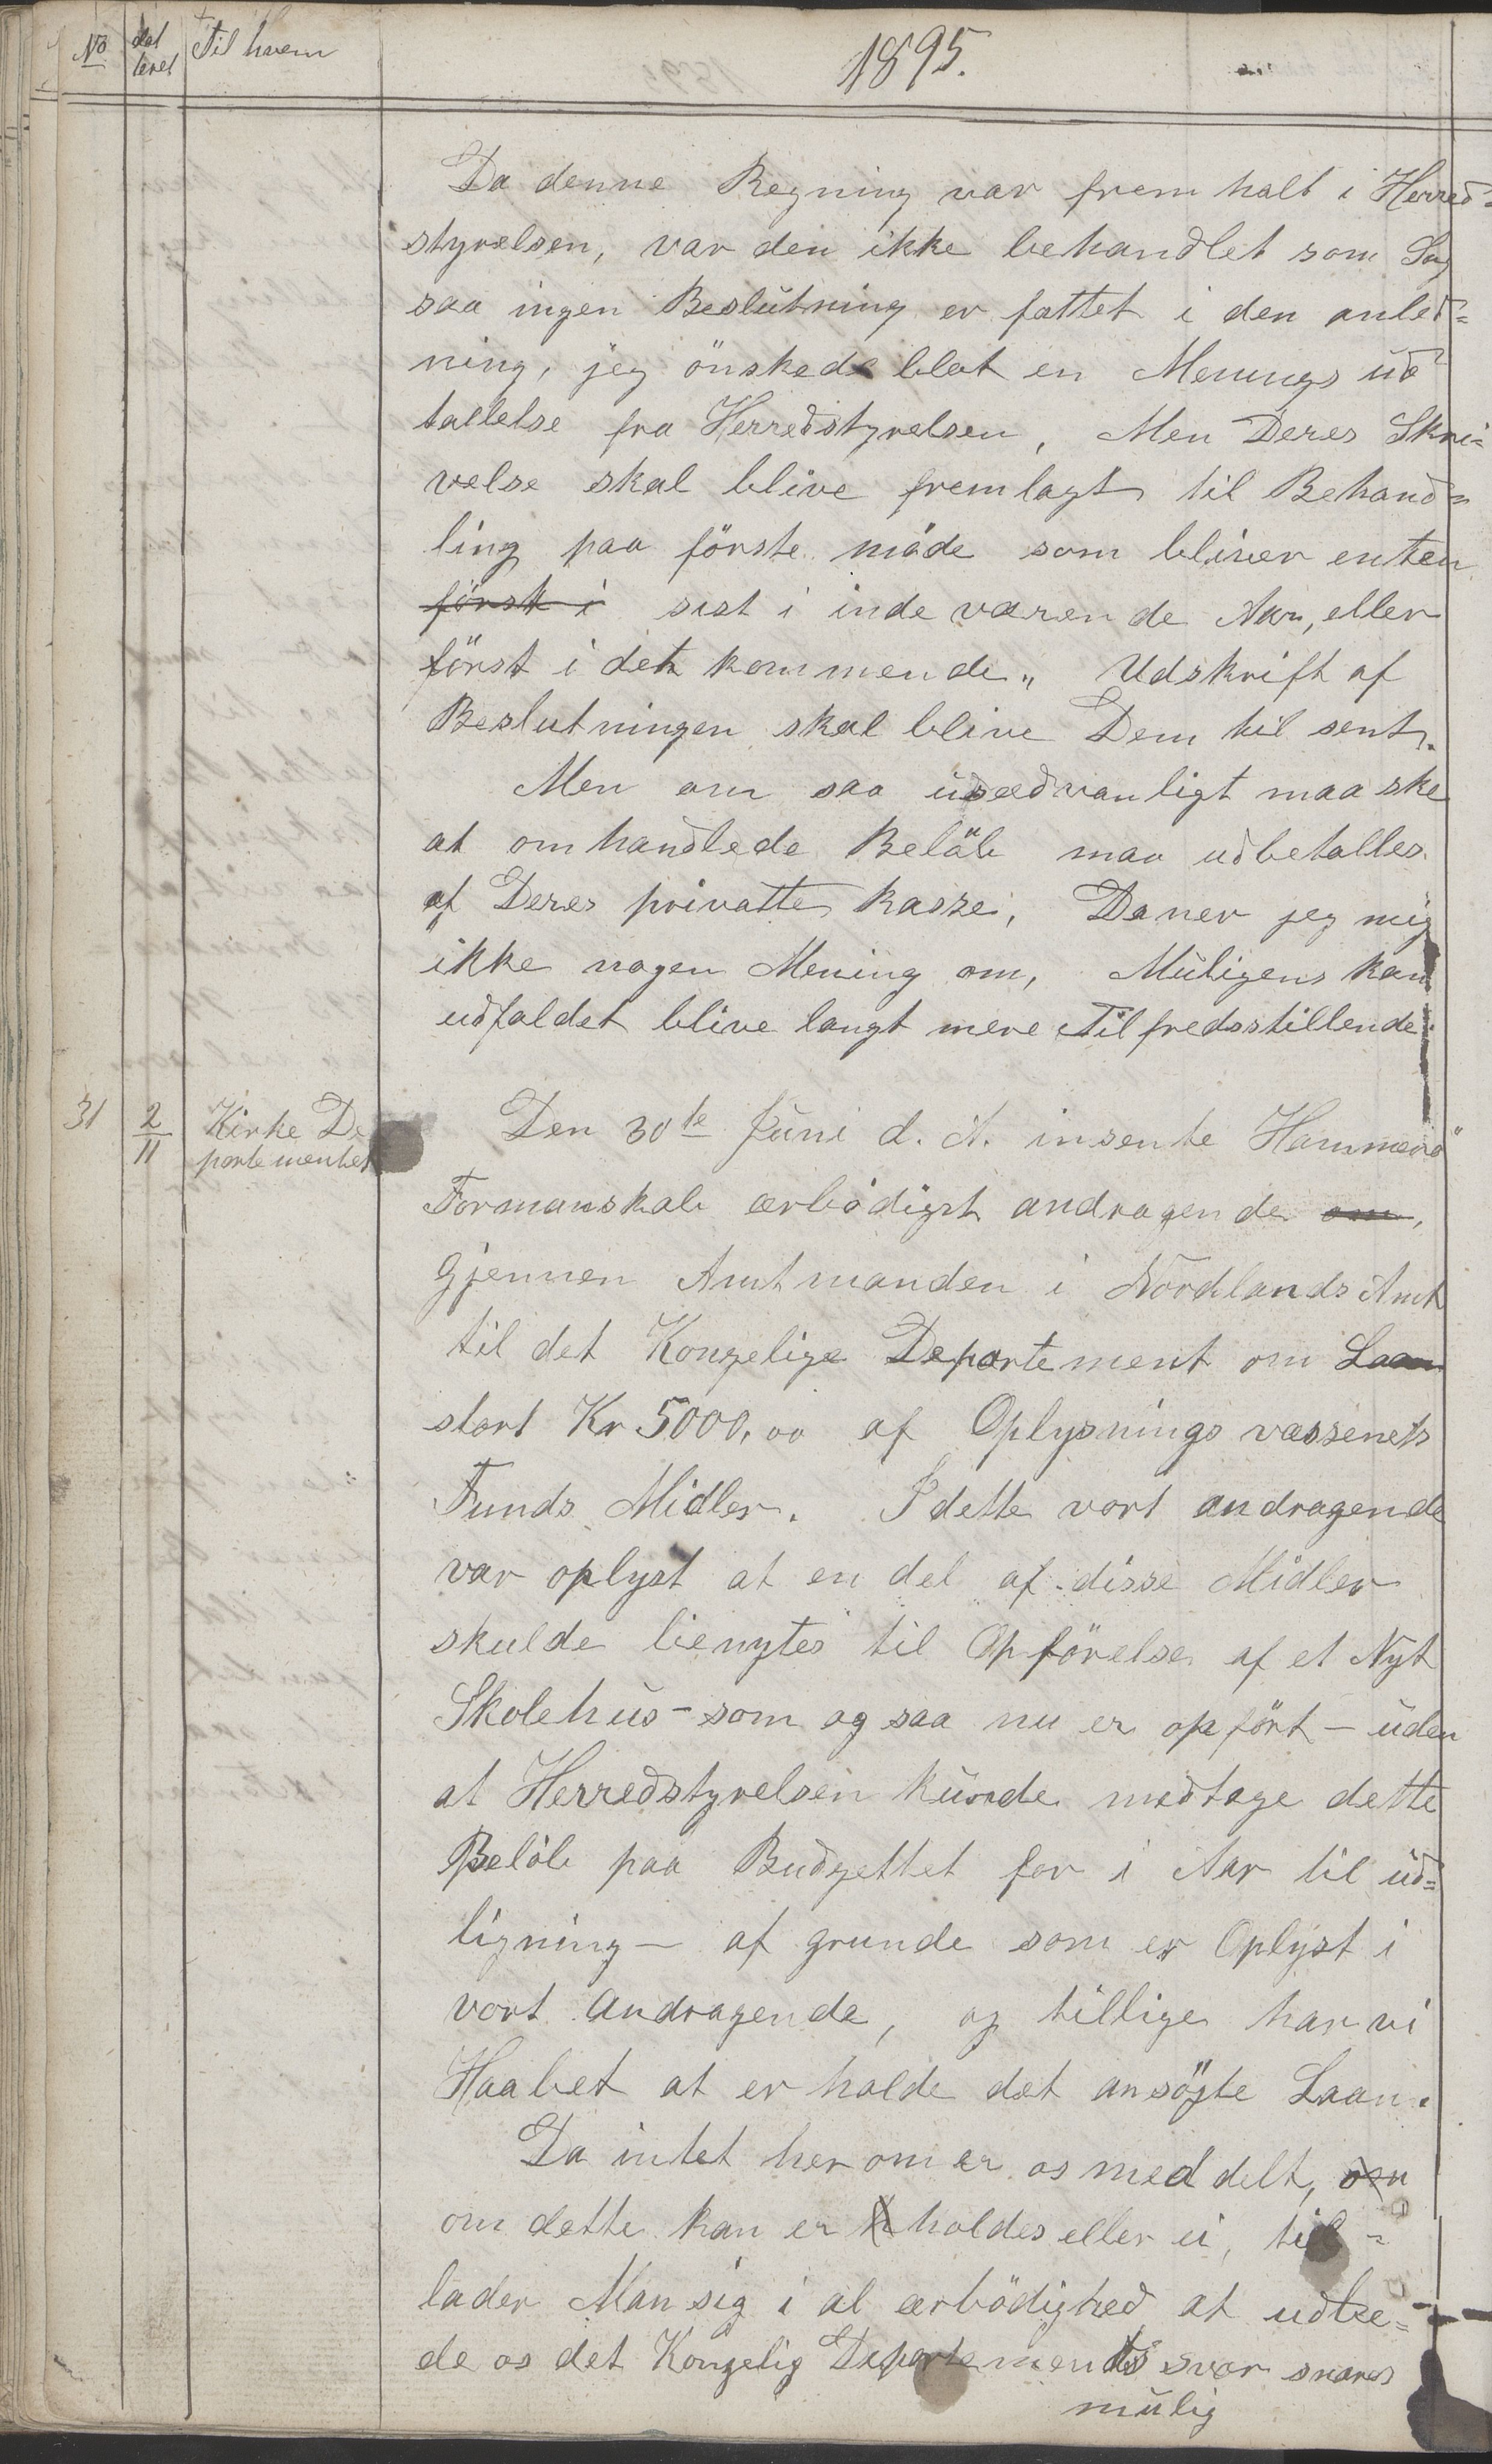 No dat Til hvem 1895.
teret
Da denne Regning var frem halt i Herred=
styrelsen, var den ikke behandlet som Sag
saa ingen Beslutning er fattet i den anled=
ning, jeg önskede blot en Menings ud
tallelse fra Herredstyrelsen, Men Deres Skri=
velse skal blive fremlagt til Behand=
ling paa förste möde som bliver enten
först i sist i inde værende Aar, eller
först i det kommende„ Udskrift af
Beslutningen skal blive Dem til sent.
Men om saa usædvanligt maa ske
at omhandlede Belöb maa udbetalles
af Deres privatte kasse, Daner jeg mig
ikke nogen Mening om, Muligens kan
udfaldet blive langt mere Tilfredsstillende.
31 2/11 Kirke De
partementet
Den 30te Juni d. A. insente Hammerö
Formanskab ærbödigst andragende om,
Gjennen Amtmanden i Nordlands Amt
til det Kongelige Departement om Laan
stort Kr 5000,00 af Oplysnings væssenets
Funds Midler. I dette vort andragende
var oplyst at en del af disse Midler
skulde bienytes til Opförelse af et Nyt
Skolehus - som og saa nu er opfört - uden
at Herredstyrelsen kunde medtage dette
Belöb paa Budgettet for i Aar til ud=
ligning - af grunde som er Oplyst i
vort Andragende, og tillige har vi
Haabet at er holde det ansögte Laan.
Da intet her om er os meddelt, om
om dette kan er holdes eller ei, til=
lader Man sig i al ærbödighed at udbe=
de os det Kongelig Departements svar snarest
mulig